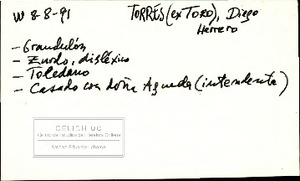 W 8-8-91 TORRES (ex TORO), Diego
Herrero
- Grandulón
- Zurdo, disléxico
- Toledano
- Casado con doña Agueda (intendenta)
CELICH UC